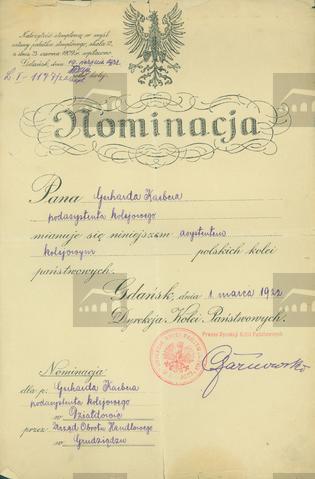 Należytość stemplową w myśl
ustawy
z dnia 3. czerwca 1879 r.
Gdańsk, dnia
Nominacja
Pana Gerharda Kaebera
podasystenta kolejowego
mianuje się niniejszem asystentem
kolejowym polskich kolei
państwowych.
Gdańsk, dnia 1 marca 1922
Dyrekcja Kolei Państwowych.
Prezes Dyrekcji Kolei Państwowych
Nominacja
dla p. Gerharda Kaebera
podasystenta kolejowego
w Działdowie
przez Urząd Obrotu Handlowego
w Grudziądzu